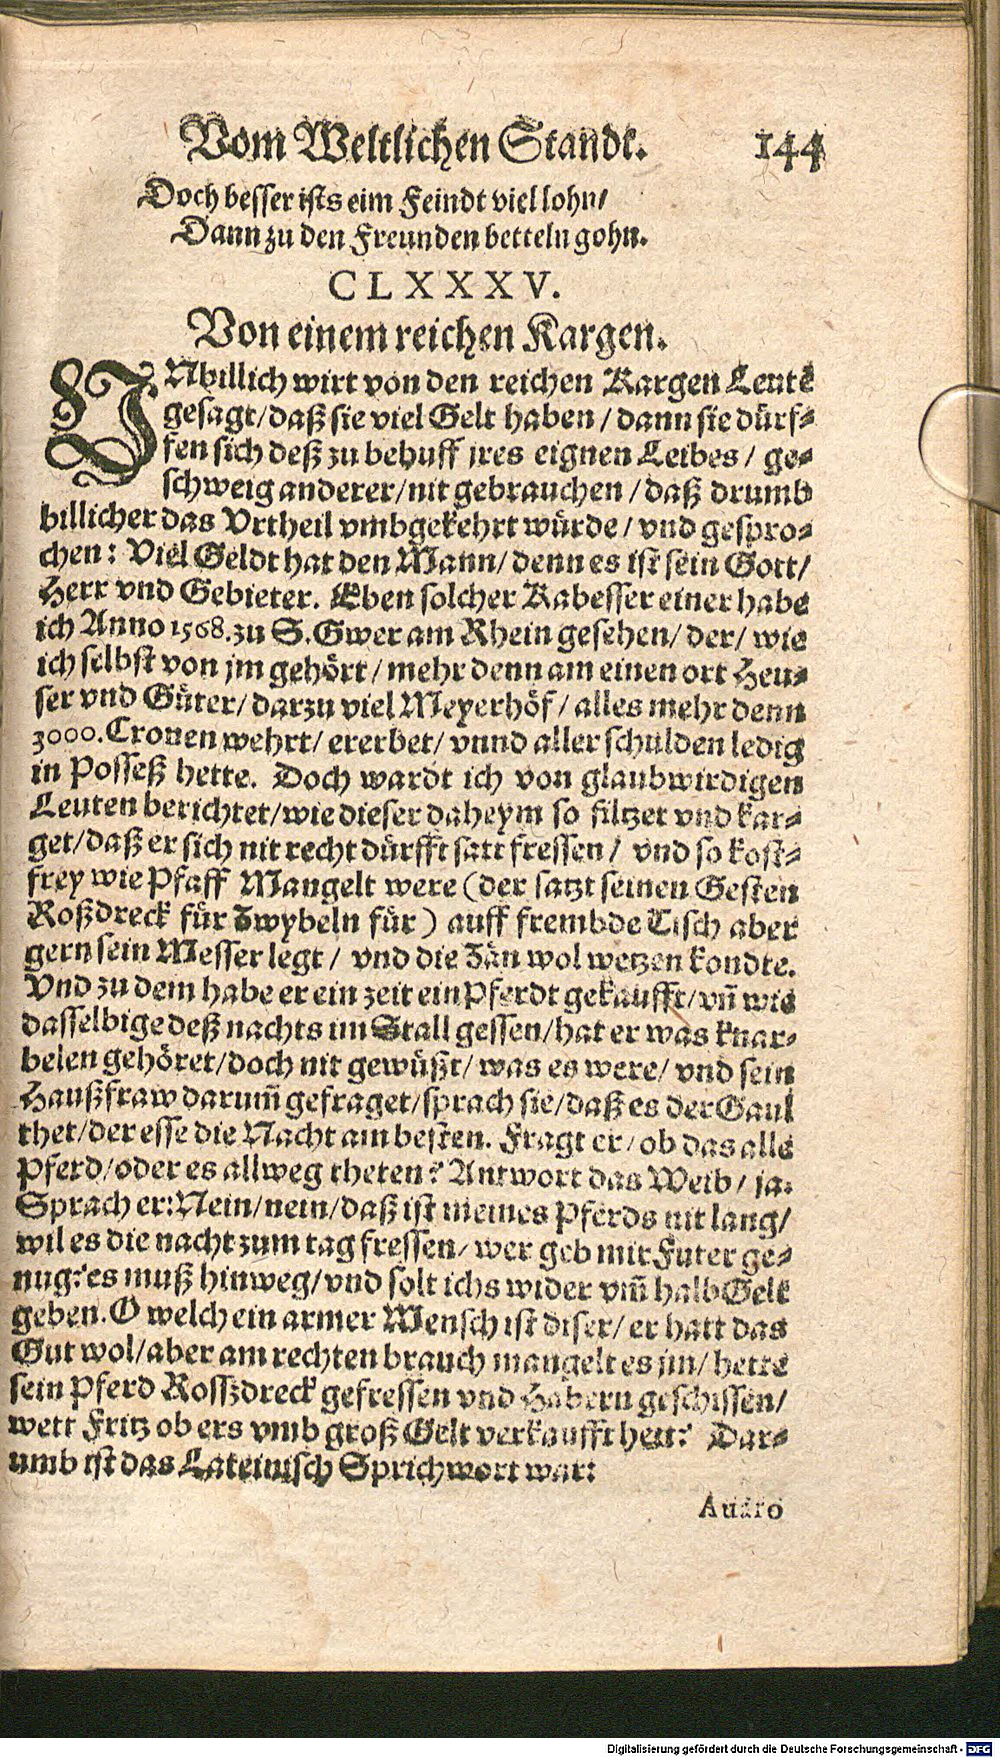 Vom Weltlichen Standt. 144
Doch besser ists eim Feindt viel lohn/
Dann zu den Freunden betteln gohn.
CLXXXV.
Von einem reichen Kargen.
VNbillich wirt von den reichen Kargen Leute
gesagt/daß sie viel Gelt haben/dann sie dürf-
fen sich deß zu behuff jres eignen Leibes/ ge-
schweig anderer/nit gebrauchen/daß drumb
billicher das Vrtheil vmbgekehrt würde/vnd gespro-
chen: Viel Geldt hat den Mann/denn es ist sein Gott/
Herr vnd Gebieter. Eben solcher Rabesser einer habe
ich Anno 1568. zu S. Gwer am Rhein gesehen/der/ wie
ich selbst von jm gehört/mehr denn am einen ort Heu-
ser vnd Güter/darzu viel Meyerhöf/alles mehr denn
3000. Cronen wehrt/ererbet/vnnd aller schulden ledig
in Posseß hette. Doch wardt ich von glaubwirdigen
Leuten berichtet/wie dieser daheym so filtzet vnd kar-
get/daß er sich nit recht dürfft satt fressen/ vnd so kost-
frey wie Pfaff Mangelt were (der satzt seinen Gesten
Roßdreck für Zwybeln für) auff frembde Tisch aber
gern sein Messer legt/ vnd die Zän wol wetzen kondte.
Vnd zu dem habe er ein zeit ein Pferdt gekaufft/vn̄ wie
dasselbige deß nachts im Stall gessen/hat er was knar-
belen gehöret/doch nit gewüßt/was es were/vnd sein
Haußfraw darum̄ gefraget/sprach sie/daß es der Gaul
thet/der esse die Nacht am besten. Fragt er/ob das alle
Pferd/oder es allweg theten? Antwort das Weib/ ja.
Sprach er: Nein/nein/daß ist meines Pferds nit lang/
wil es die nacht zum tag fressen/wer geb mir Futer ge-
nug? es muß hinweg/vnd solt ichs wider vm̄ halb Gelt
geben. O welch ein armer Mensch ist diser/er hatt das
Gut wol/aber am rechten brauch mangelt es jm/hette
sein Pferd Rosszdreck gefressen vnd Habern geschissen/
wett Fritz ob ers vmb groß Gelt verkaufft hett? Dar-
umb ist das Lateinisch Sprichwort war:
Auaro
Digitalisierung gefördert durch die Deutsche Forschungsgemeinschaft - DFG